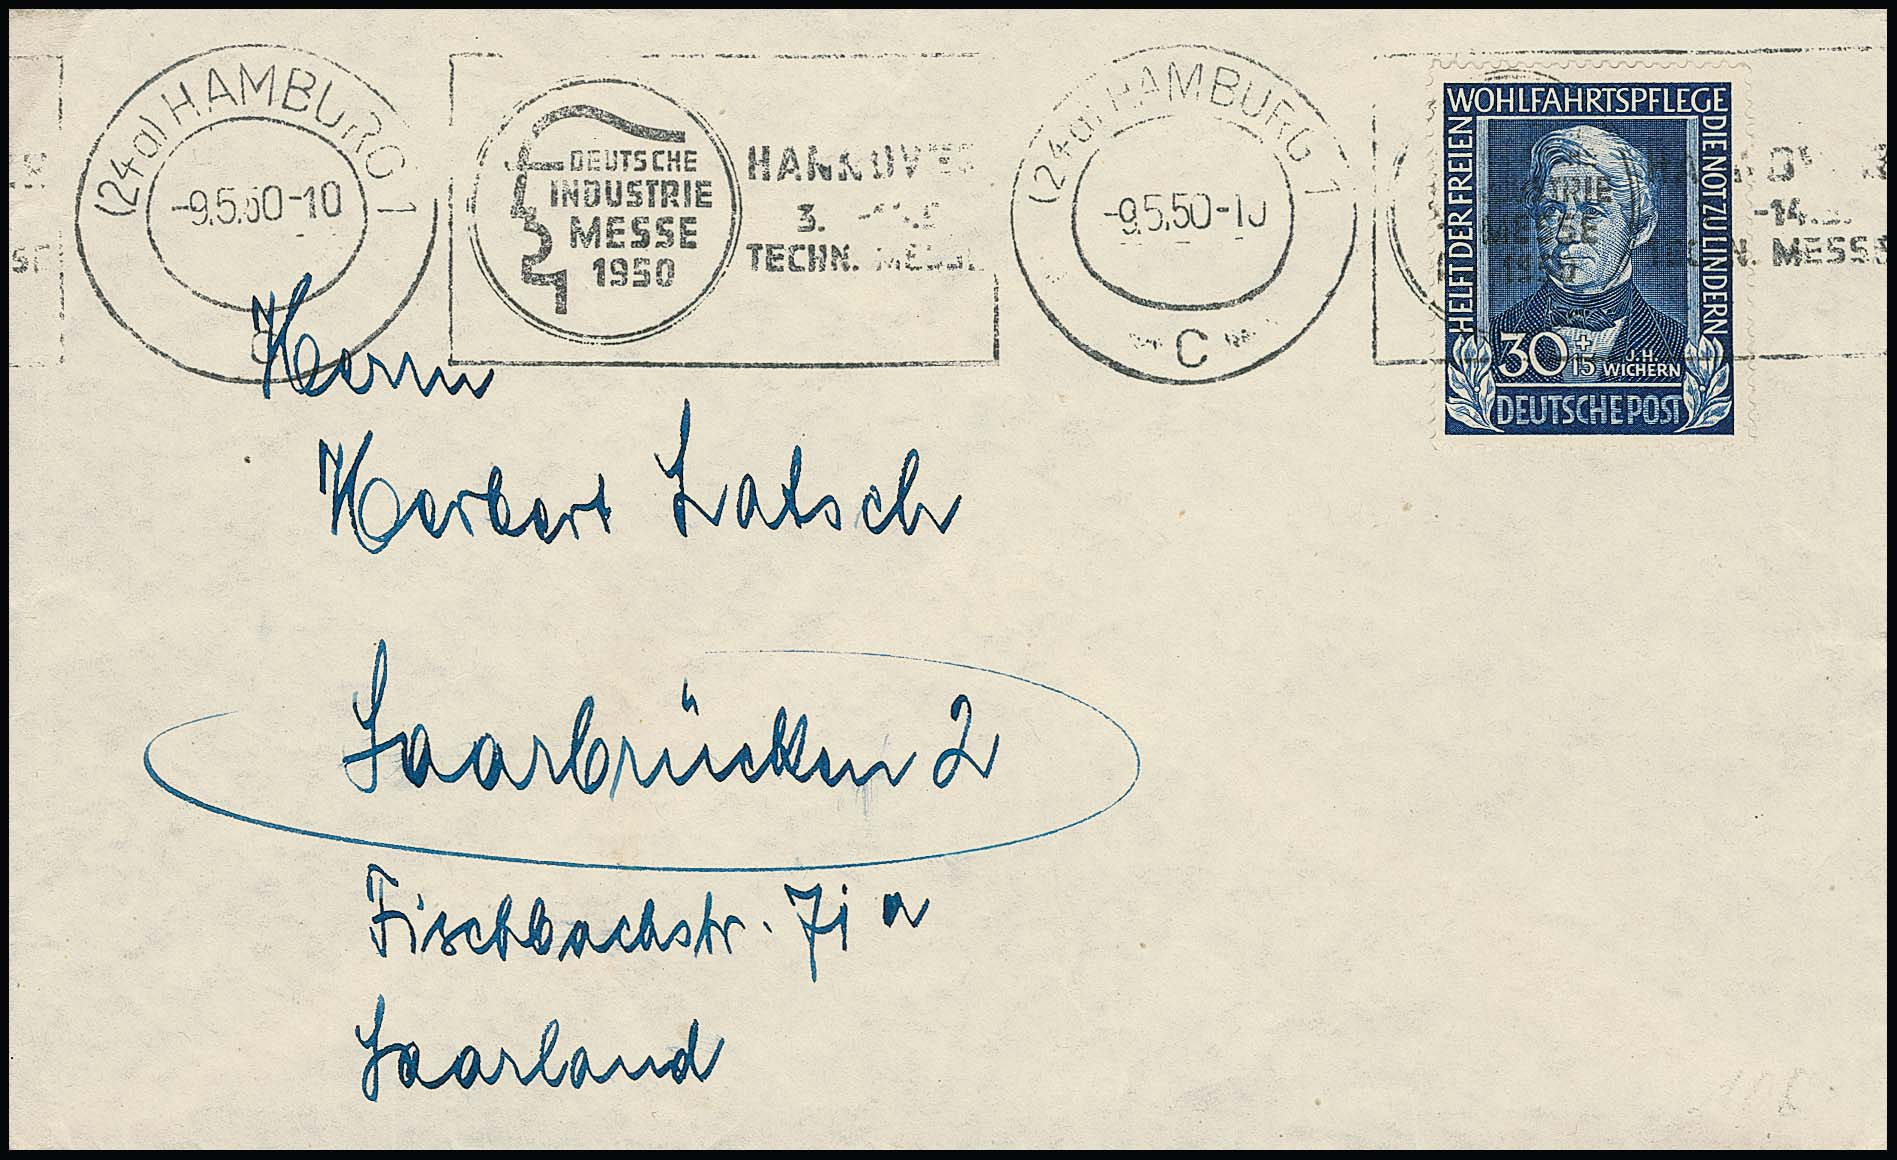 (24a) HAMBURG 1
-9.5.50-10
c
DEUTSCHE
INDUSTRIE
MESSE
1950
HANNOVER
3. -14.5.
TECHN. MESSE
(24a) HAMBURG 1
-9.5.50-10
c
MESSE
1950
-14.
TECHN. MESSE
HELFT DER FREIEN
WOHLFAHRTSPFLEGE
DIE NOT ZU LINDERN
30 + 15
J.H.
WICHERN
DEUTSCHE POST
Herrn
Herbert Latsch
Saarbrücken 2
Fischbachstr. 71 a
Saarland